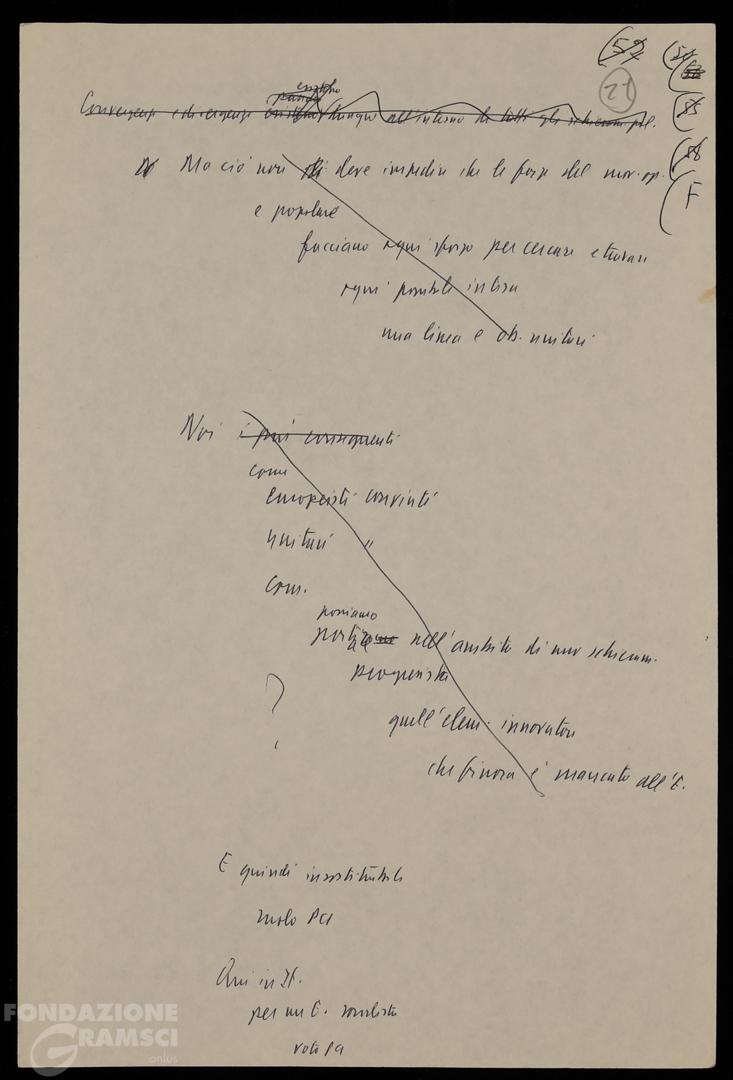 (57
(21)
(55
(56
(F
Convergenze e divergenze esistono dunque all'interno di tutti gli schieram. pol.
Ma ciò non deve impedire che le forze del mov. op.
e popolare
facciano ogni sforzo per cercare e trovare
ogni possibile intesa
una linea e ob. unitari
Noi i più conseguenti
come
Europeisti convinti
unitari "
com.
possiamo
portare nell'ambito di uno schieram.
progressista
quell'elem. innovatore
che finora è mancato all'E.
?
E quindi insostituibile
ruolo PCI
Qui in It.
per un E. socialista
voto PCI
FONDAZIONE
GRAMSCI
onlus